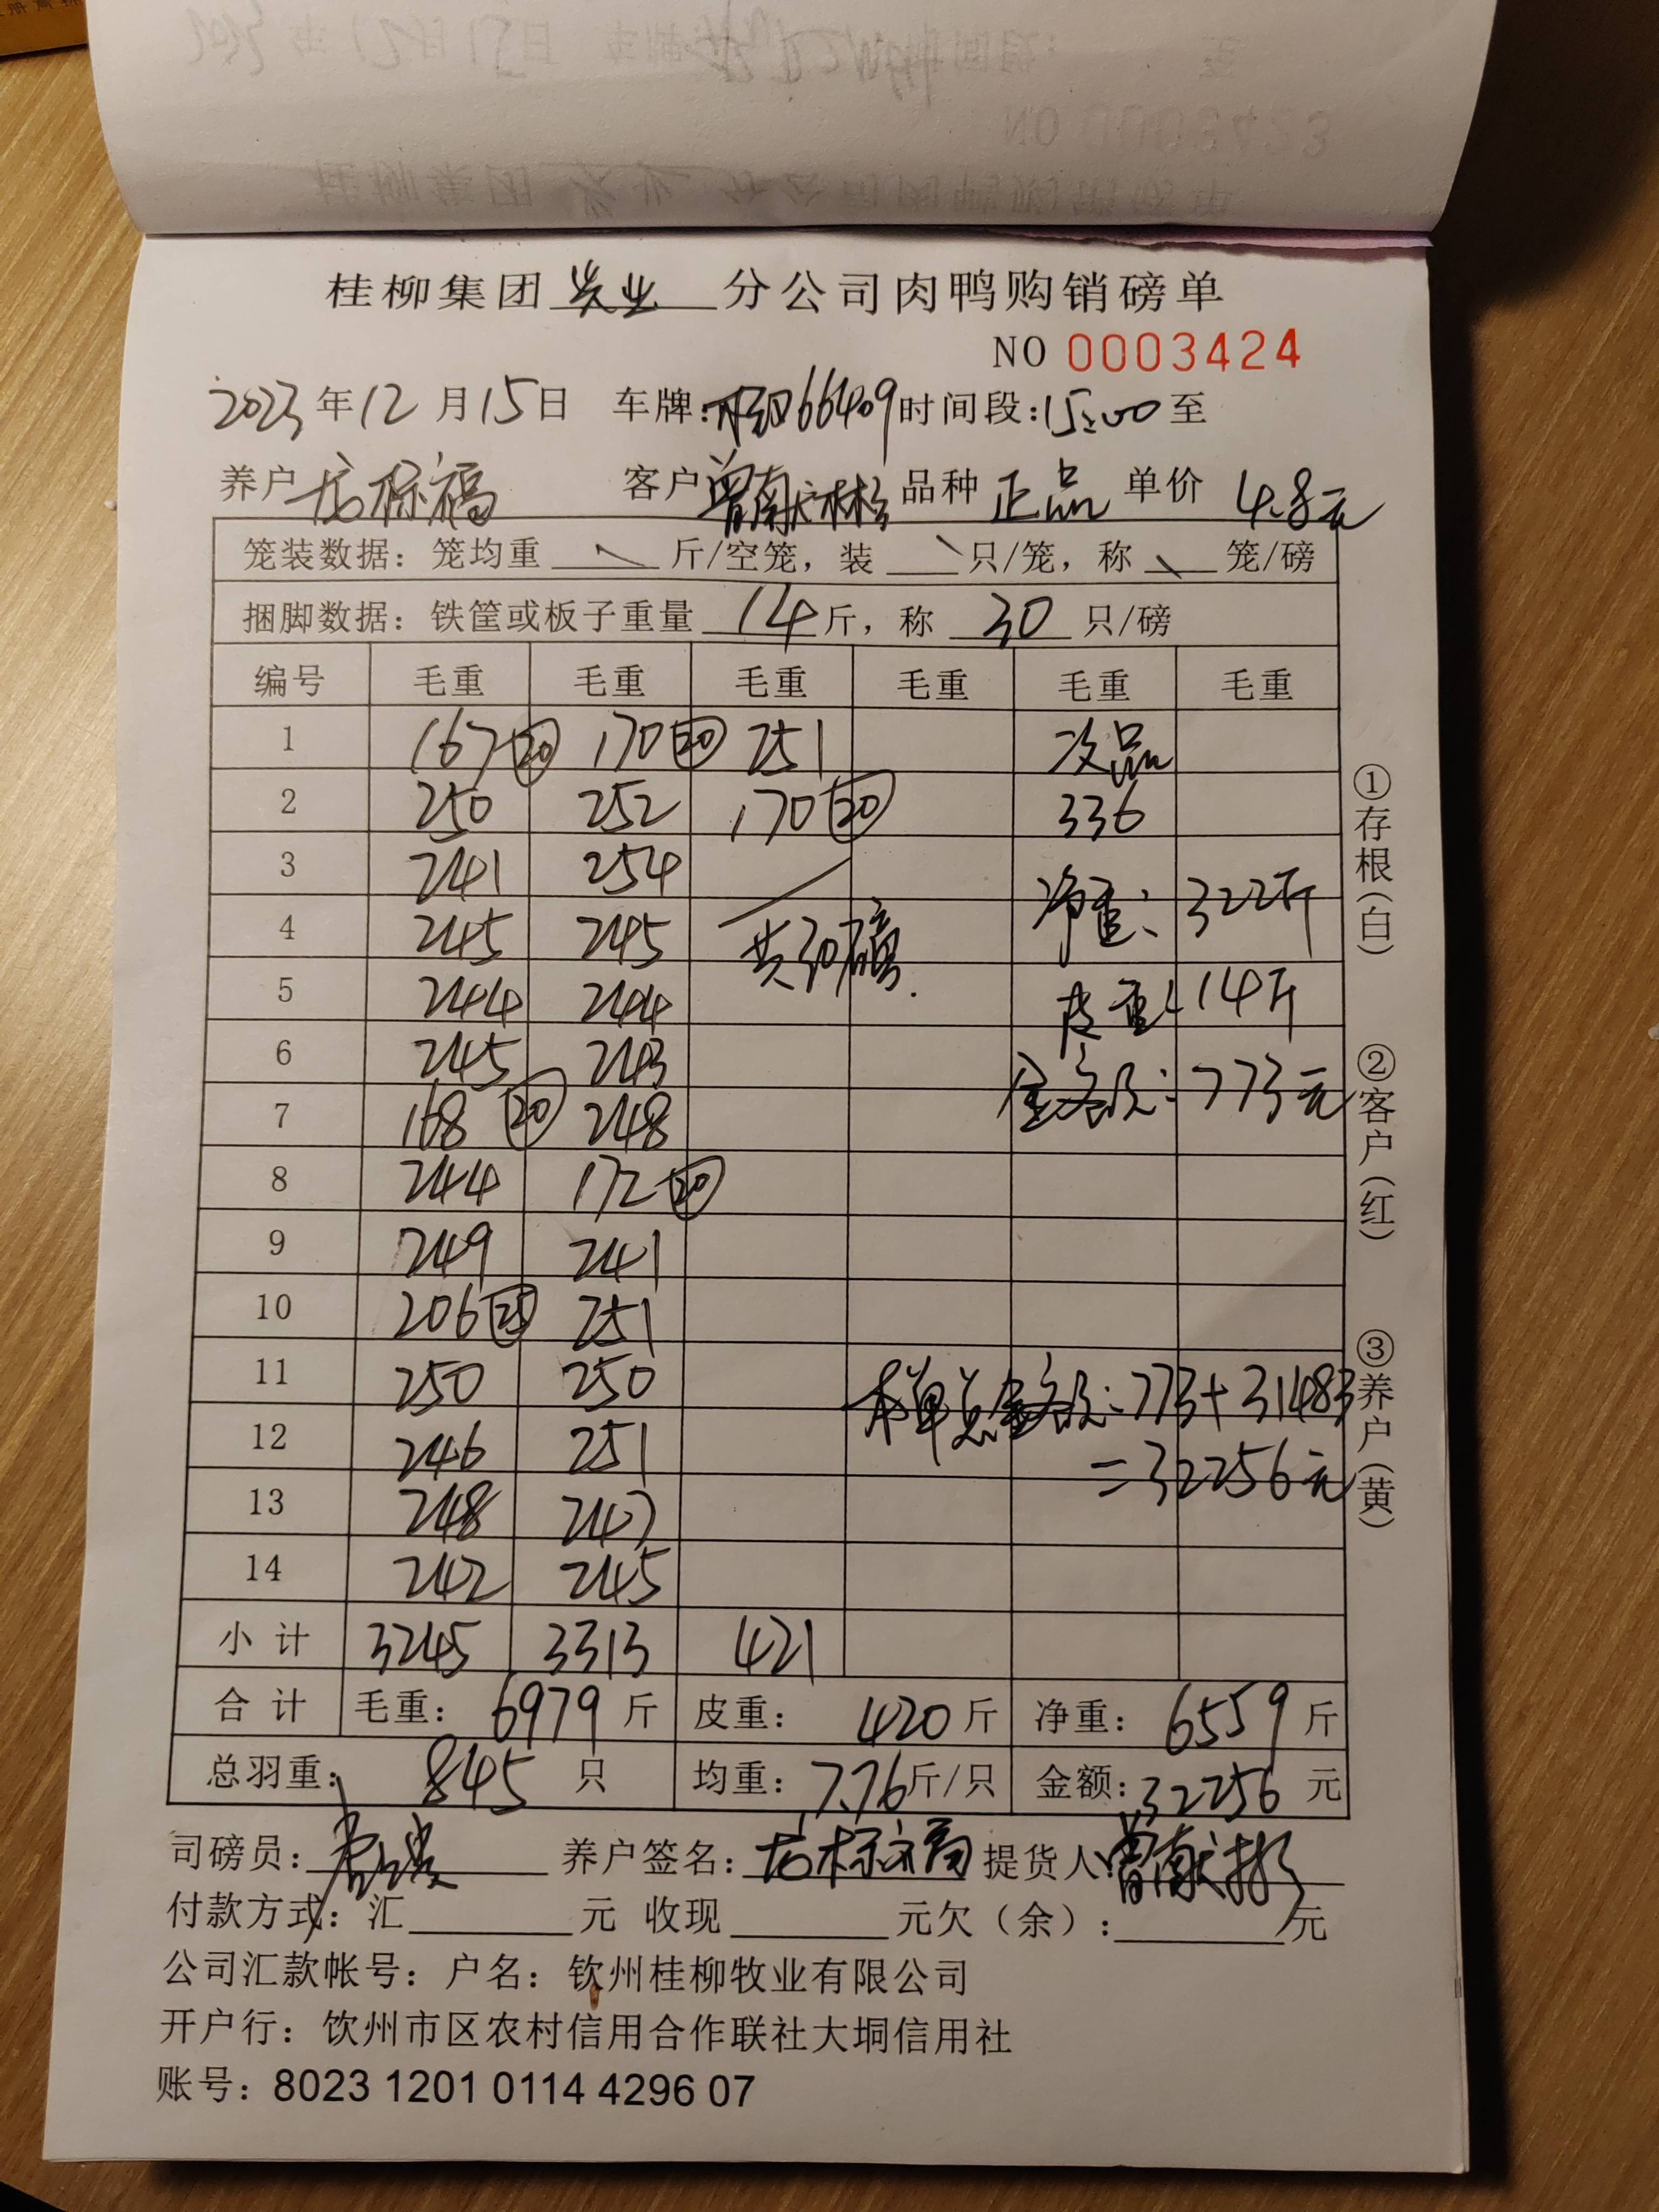 桂柳集团 分公司肉鸭购销磅单
NO 0003424
2023年12月15日 车牌: 66409 时间段:15:00至
养户 标福 客户 曾献彬 品种 正品 单价 4.8元
笼装数据：笼均重 \ 斤/空笼，装 \ 只/笼，称 \ 笼/磅
捆脚数据：铁筐或板子重量 14 斤，称 30 只/磅
编号 毛重 毛重 毛重 毛重 毛重 毛重
1 167⑳ 170⑳ 251 次品
2 250 252 170⑳ 336
3 241 254
净重：322斤
4 245 245 共30磅.
5 244 244 皮重：14斤
6 245 243
金额：773元
7 168⑳ 248
8 244 172⑳
9 249 241
10 206㉕ 251
11 250 250 本单总金额：773+31483
12 246 251 =32256元
13 248 247
14 242 245
小计 3245 3313 421
合计 毛重：6979斤 皮重：420斤 净重：6559斤
总羽重：845只 均重：7.76斤/只 金额：32256元
司磅员： 养户签名： 标福 提货人：曾献彬
付款方式：汇 元 收现 元欠（余）： 元
公司汇款帐号：户名：钦州桂柳牧业有限公司
开户行：饮州市区农村信用合作联社大垌信用社
账号：8023 1201 0114 4296 07
①存根（白）
②客户（红）
③养户（黄）